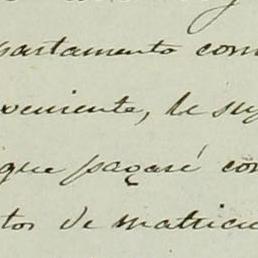 partamento com
veniente, le su
que pagaré con
tos de matricu